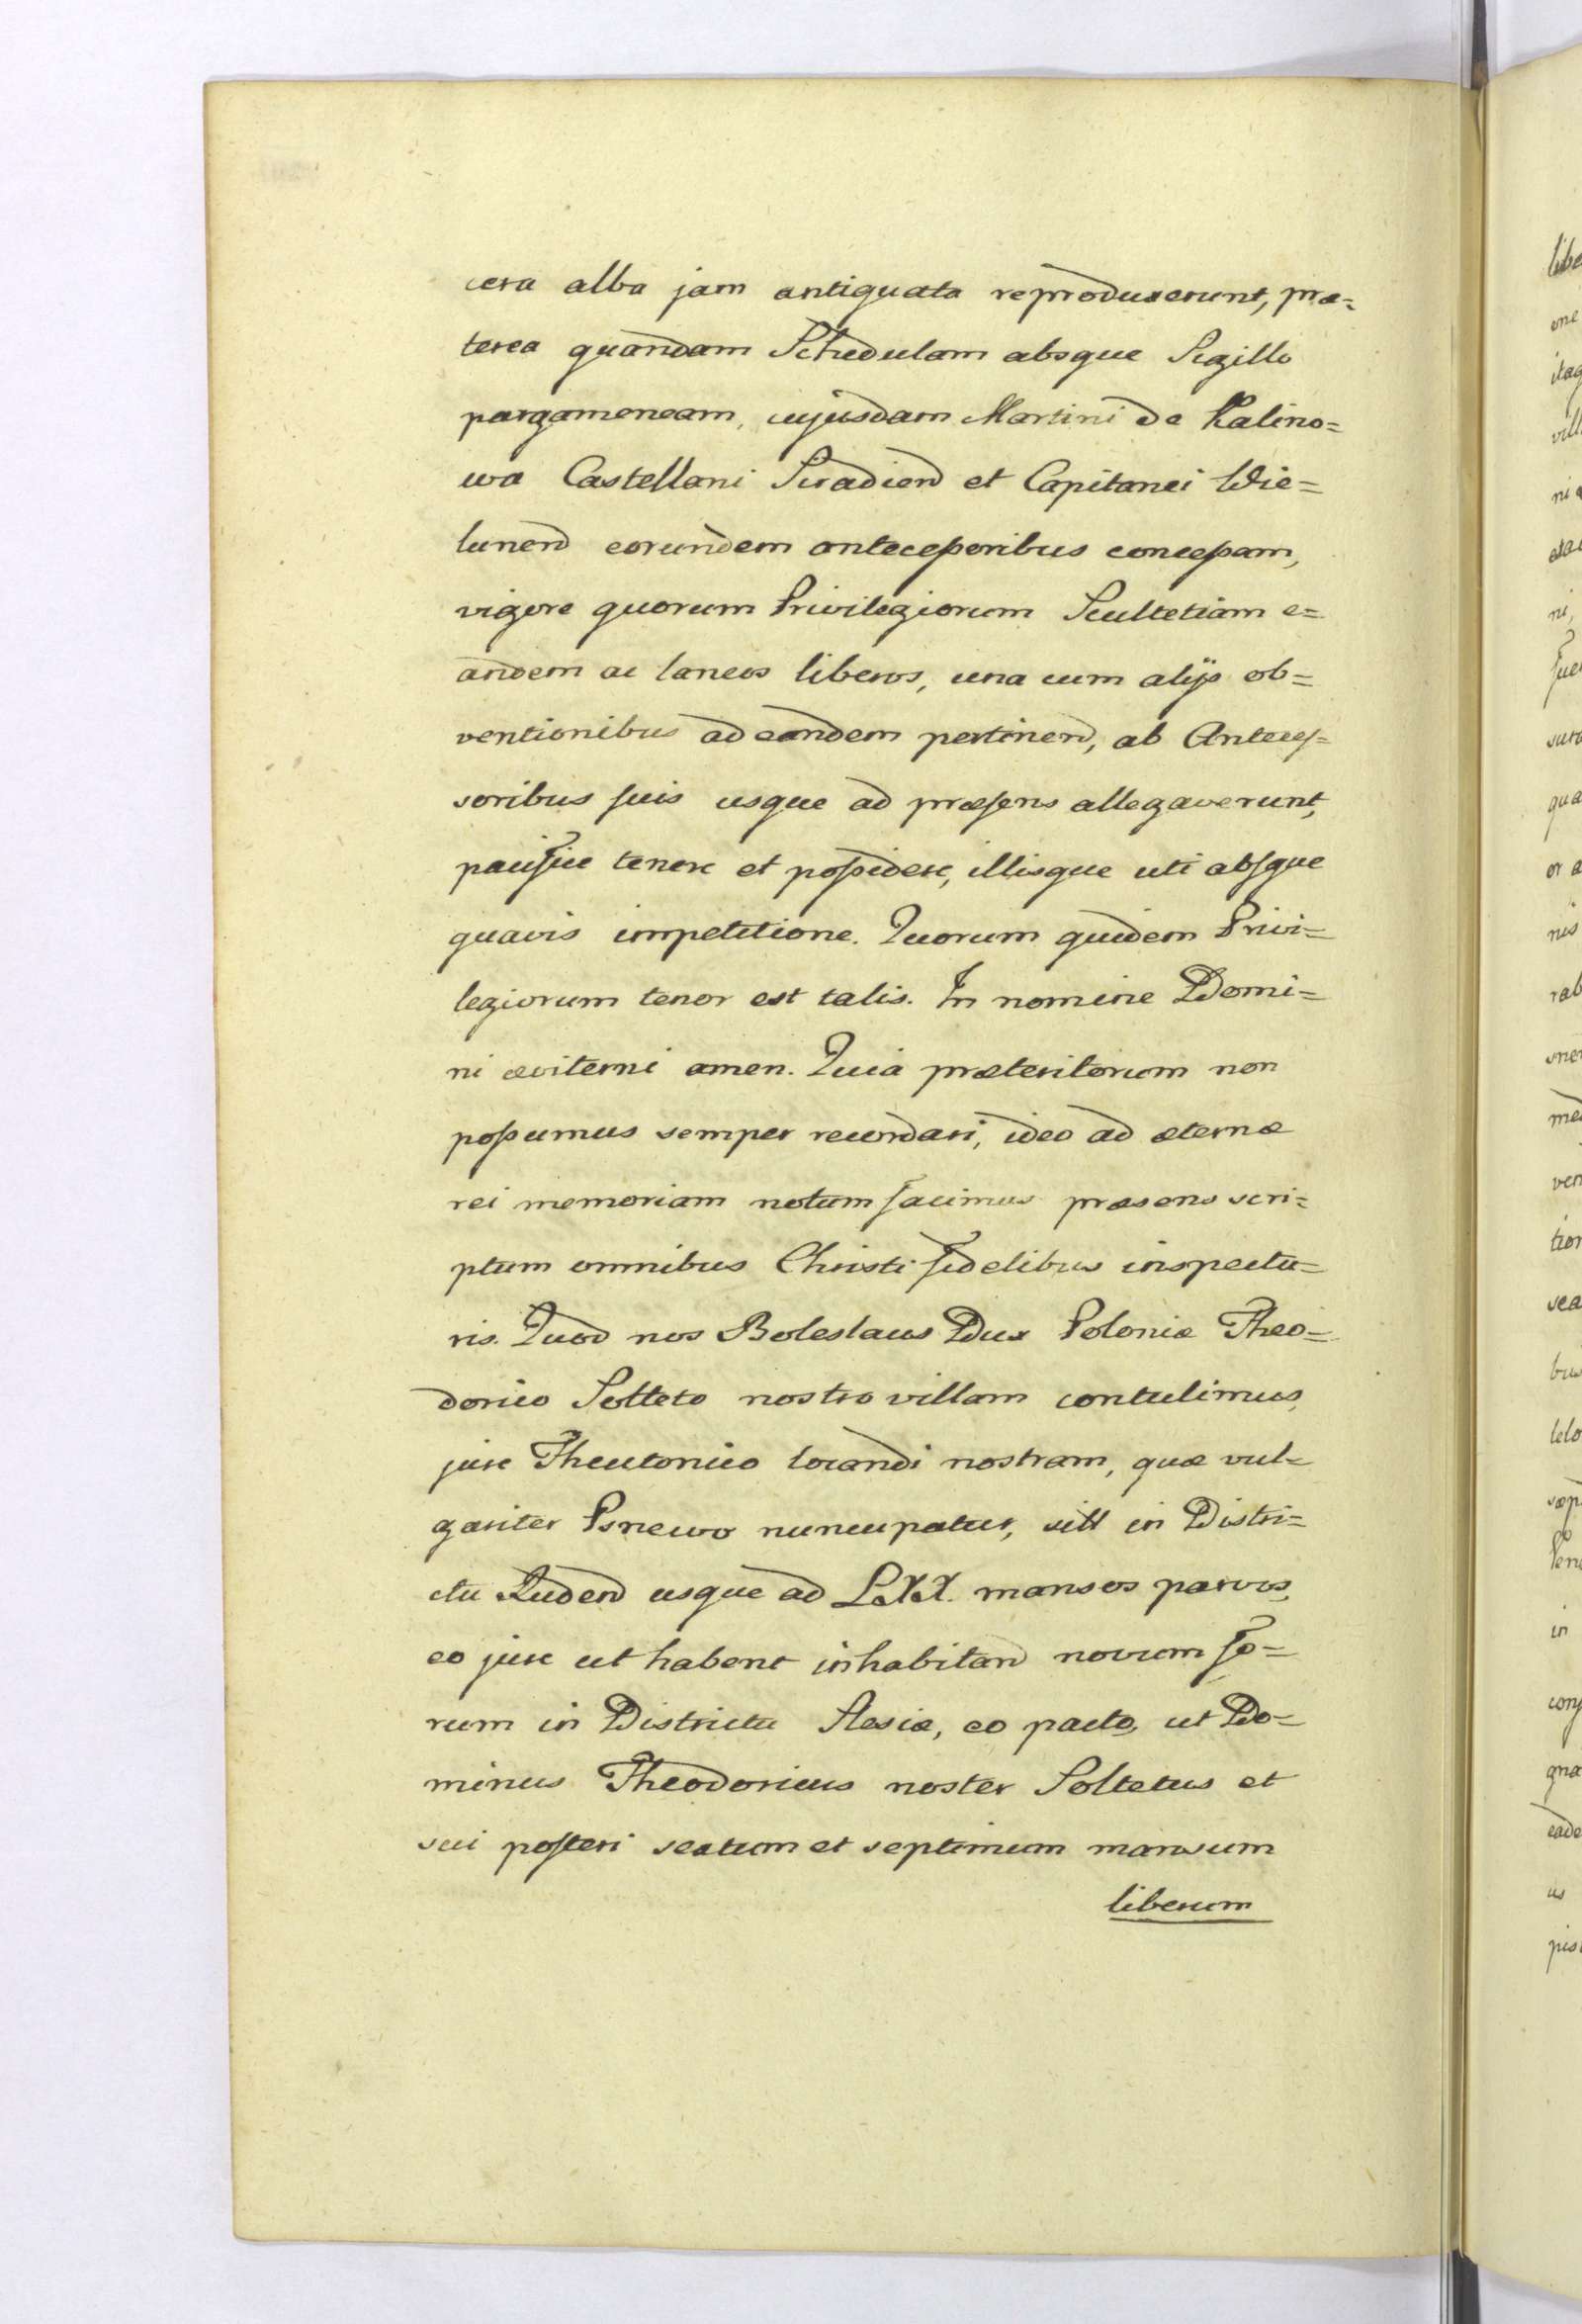 cera alba jam antiquata reproduxerunt, præ=
terea quandam Schedulam absque Sigillo
pargameneam, cujusdam Martini de Kalino=
wa Castellani Siradien̄ et Capitanei Wie=
lunen̄ eorundem antecessoribus concessam,
vigore quorum Privilegiorum Scultetiam e=
andem ac laneos liberos, una cum alijs ob=
ventionibus ad eandem pertinen̄, ab Anteces=
soribus suis usque ad præsens allegaverunt,
pacifice tenere et possidere, illisque uti absque
quavis impetitione. Quorum quidem Privi=
legiorum tenor est talis. In nomine Domi=
ni æviterni amen. Quia præteritorum non
possumus semper recordari, ideo ad æternæ
rei memoriam notum facimus præsens scri=
ptum omnibus Christi fidelibus inspectu=
ris. Quod nos Boleslaus Dux Poloniæ Theo=
dorico Solteto nostro villam contulimus,
jure Theutonico locandi nostram, quæ vul=
gariter Psnewo nuncupatur, sitt in Distri=
ctu Ruden̄ usque ad LXX. mansos parvos,
eo jure ut habent inhabitan̄ novum fo=
rum in Districtu Slesiæ, eo pacto, ut Do=
minus Theodoricus noster Soltetus et
sui posteri sextum et septimum mansum
liberum
libe
one
itaq
vill
ni
ni,
qua
or a
nis
rab
ven
tion
in
pis